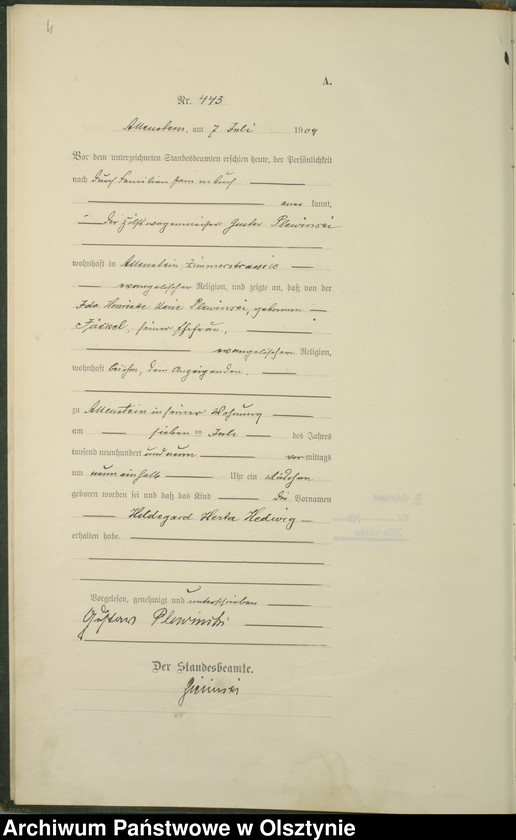 A.
Nr. 443
Allenstein, am 7 Juli 1909
Vor dem unterzeichneten Standesbeamten erschien heute, der Persönlichkeit
nach durch Familienstammbuch
aner kannt,
der Hilfswagenmeister Gustav Plewinski
wohnhaft in Allenstein, Zimmerstrasse 10
evangelischer Religion, und zeigte an, daß von der
Ida Henriette Marie Plewinski, geborenen
Jäckel, seiner Ehefrau,
evangelischen Religion,
wohnhaft bei ihm, dem Anzeigenden,
zu Allenstein in seiner Wohnung
am sieben ten Juli des Jahres
tausend neunhundert und neun vor mittags
um neun einhalb Uhr ein Mädchen
geboren worden sei und daß das Kind die Vornamen
Hildegard Herta Hedwig
erhalten habe.
Vorgelesen, genehmigt und unterschrieben
Gustav Plewinski
Der Standesbeamte.
Archiwum Państwowe w Olsztynie